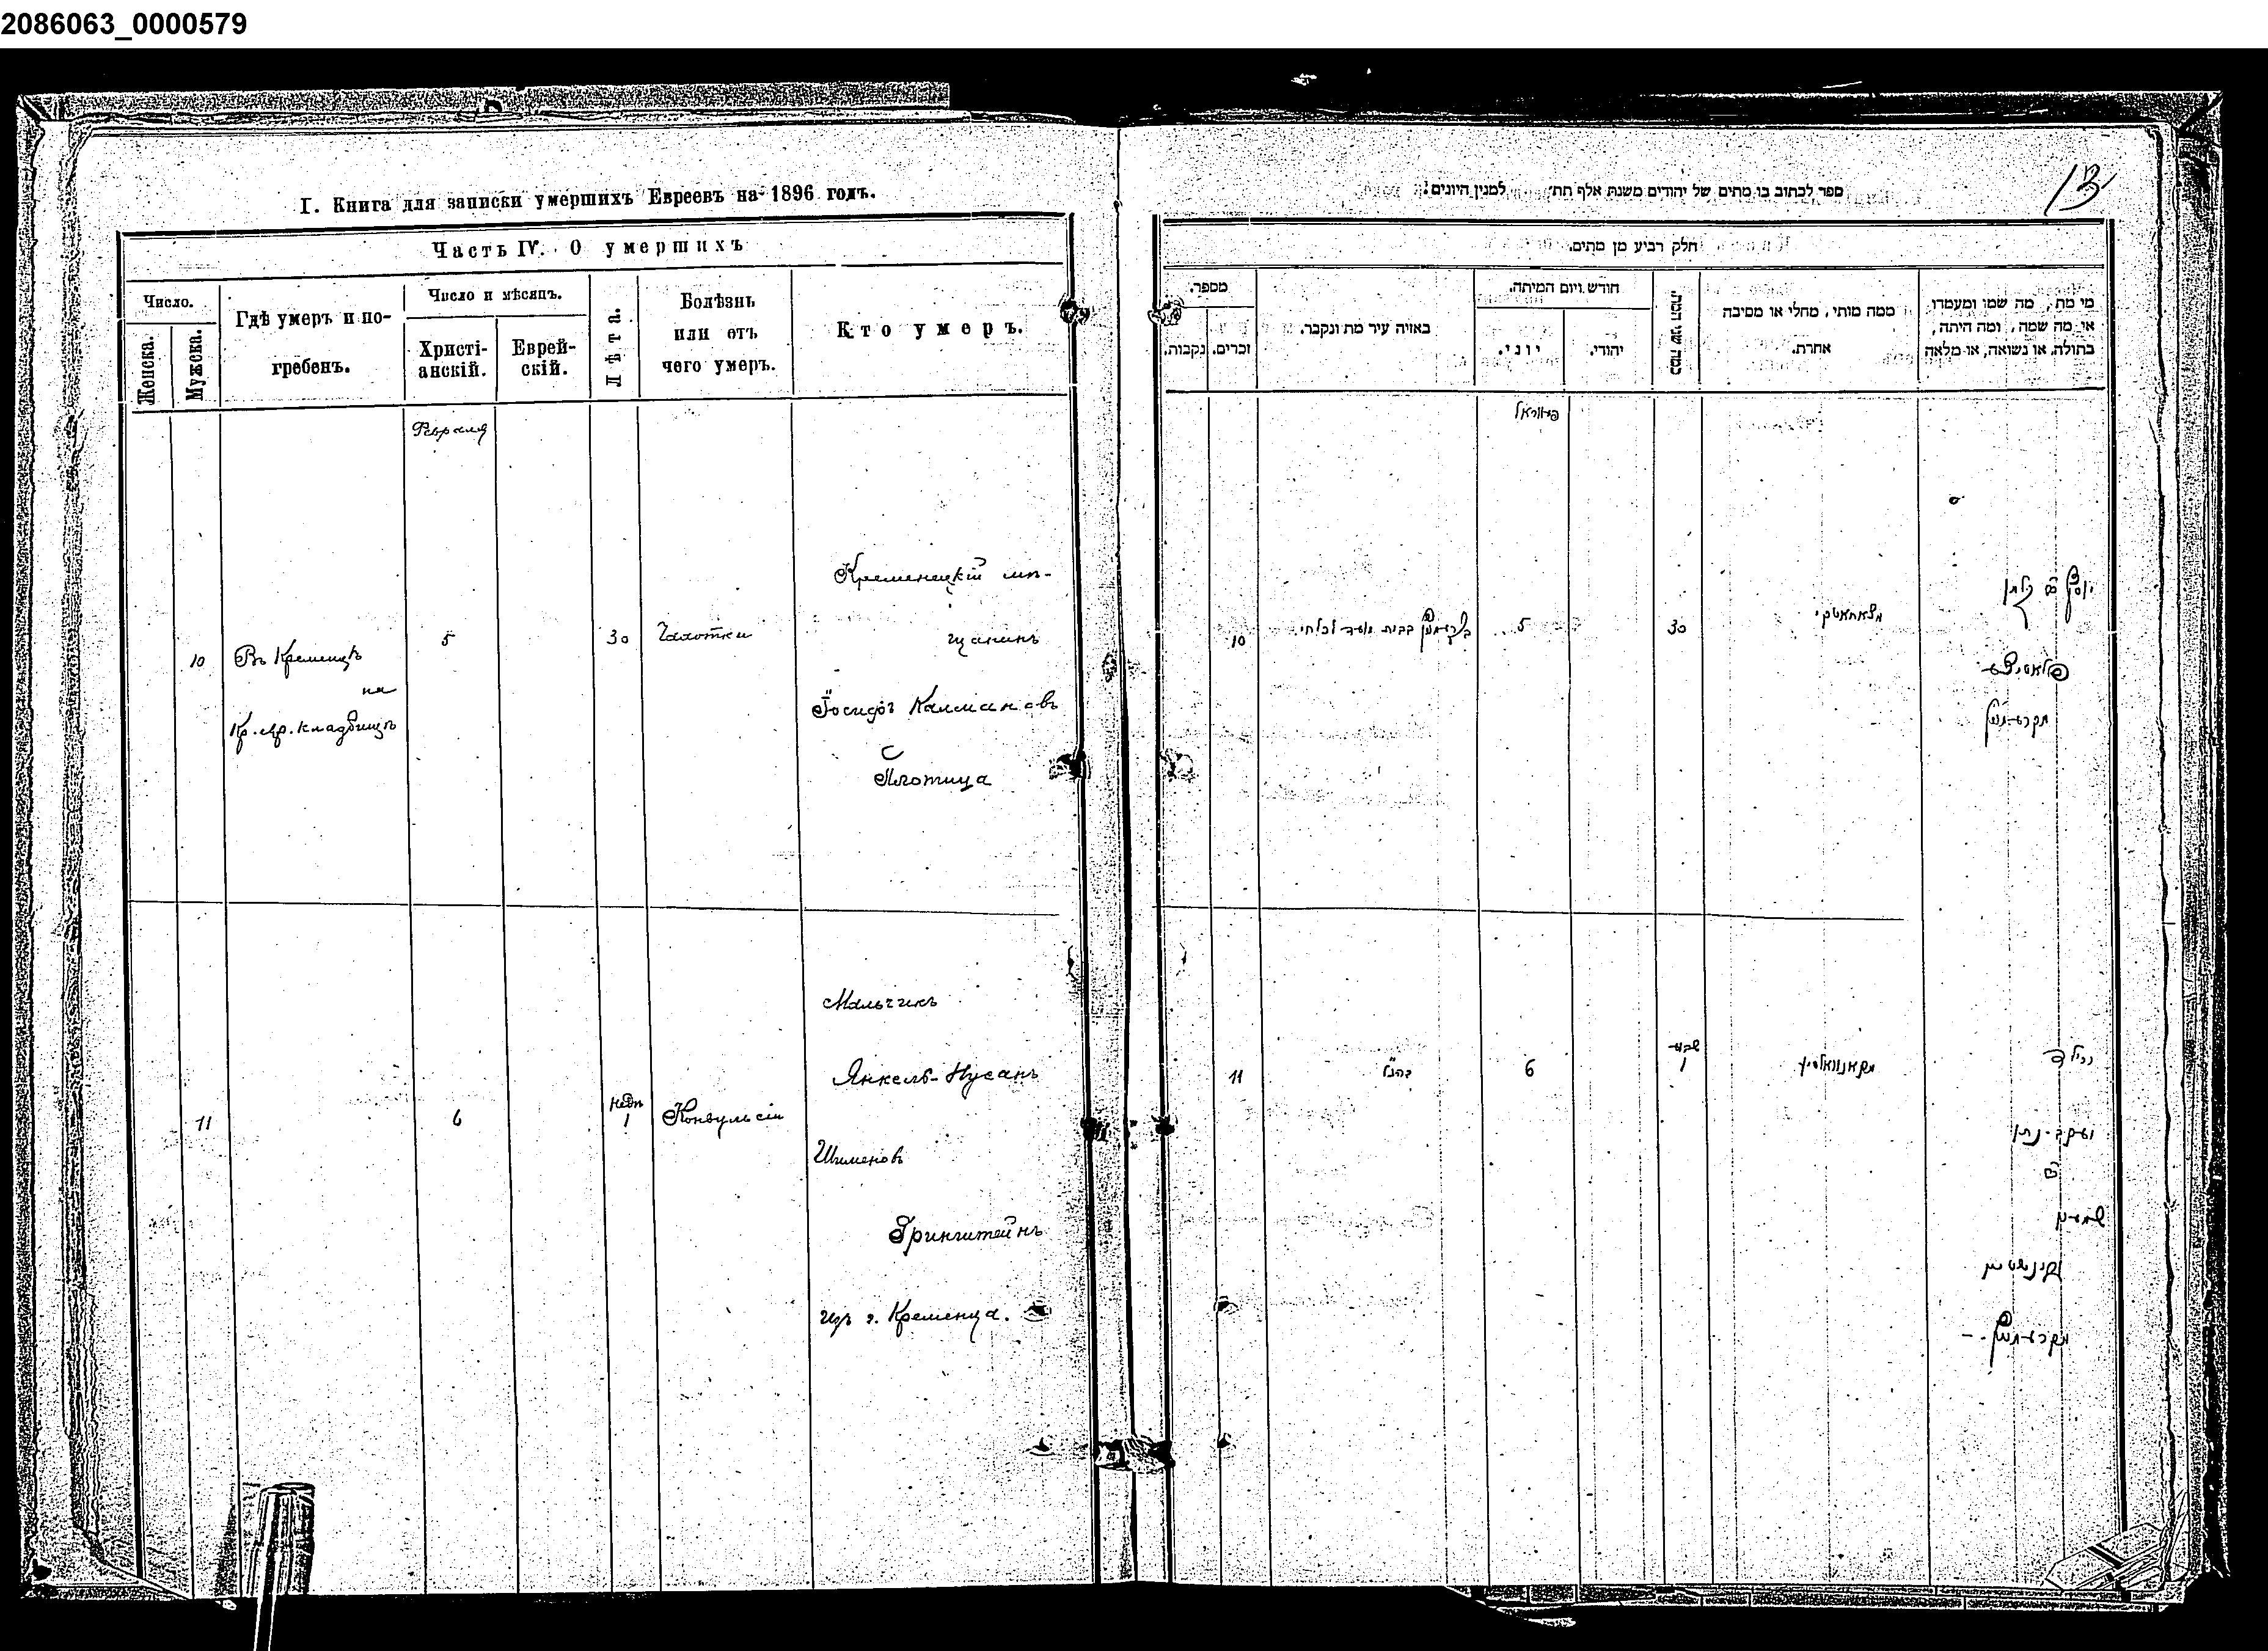 2086063_0000579
I. Книга для записки умершихъ Евреевъ на 1896 годъ.
Часть IV. О умершихъ
Число.
Женска.
Мужска.
Гдѣ умеръ и по-
гребенъ.
Число и мѣсяцъ.
Христі-
анскій.
Еврей-
скій.
Лѣта.
Болѣзнь
или отъ
чего умеръ.
Кто умеръ.
Февраля
10
Въ Кременцѣ
на
Кр. евр. кладбищѣ
5
30
Чахотки
Кременецкій мѣ-
щанинъ
Іосифъ Калмановъ
Плотица
11
6
недѣ
1
Конвульсіи
Мальчикъ
Янкель-Нусанъ
Шименовъ
Гринштейнъ
изъ г. Кременца.
13
ספר לכתוב בו מתים של יהודים משנת אלף תת׳ למנין היונים!
חלק רביע מן מתים.
מספר.
נקבות.
זכרים.
באיזה עיר מת ונקבר.
חודש ויום המיתה.
יוני.
יהודי.
כמה שני המת.
ממה מותי, מחלי או מסיבה
אחרת.
מי מת, מה שמו ומעמדו
או מה שמה, ומה היתה,
בתולה, או נשואה, או מלאה
10
5
30
יוסף ב״ר קלמן
11
בהנ״ל
6
שבוע
1
הילד
יעקב-נתן
ב״ר
שמעון
גרינשטיין